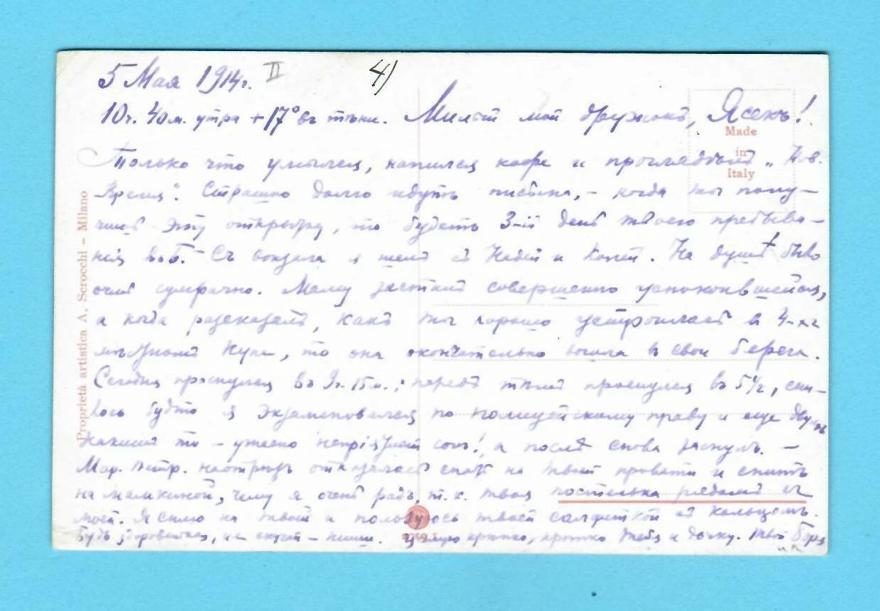 5 Мая 1914г. II 4)
10ч. 40м. утра +17° въ тѣни. Милый мой дружокъ, Ясекъ!
Made
in
Italy
Только что умылся, напился кофе и проглядѣлъ „Нов.
Время". Страшно долго идутъ письма, – когда ты полу-
чишь эту открытку, то будетъ 3-ій день твоего пребыва-
нія въ Б. Съ вокзала я шелъ съ Надей и Колей. На душѣ было
очень сумрачно. Маму засталъ совершенно успокоившейся,
а когда разсказалъ, какъ ты хорошо устроилась въ 4-хъ
мѣстномъ купэ, то она окончательно вошла въ свои берега.
Сегодня проснулся въ 9ч. 15м.; передъ тѣмъ проснулся въ 5½, сни-
лось будто я экзаменовался по полицейскому праву и еще
то – ужасно непріятный сонъ!, а послѣ снова заснулъ. –
Мар. Петр. наотрѣзъ отказалась спать на твоей кровати и спитъ
на мамкиной, чему я очень радъ, т. к. твоя постелька рядомъ съ
моей. Я сплю на твоей и пользуюсь твоей салфеткой съ кольцомъ.
Будь здоровенька, не скучай – пиши. Цѣлую крѣпко, крѣпко тебя и дочку. Твой Боря
Proprietà artistica A. Scrocchi – Milano